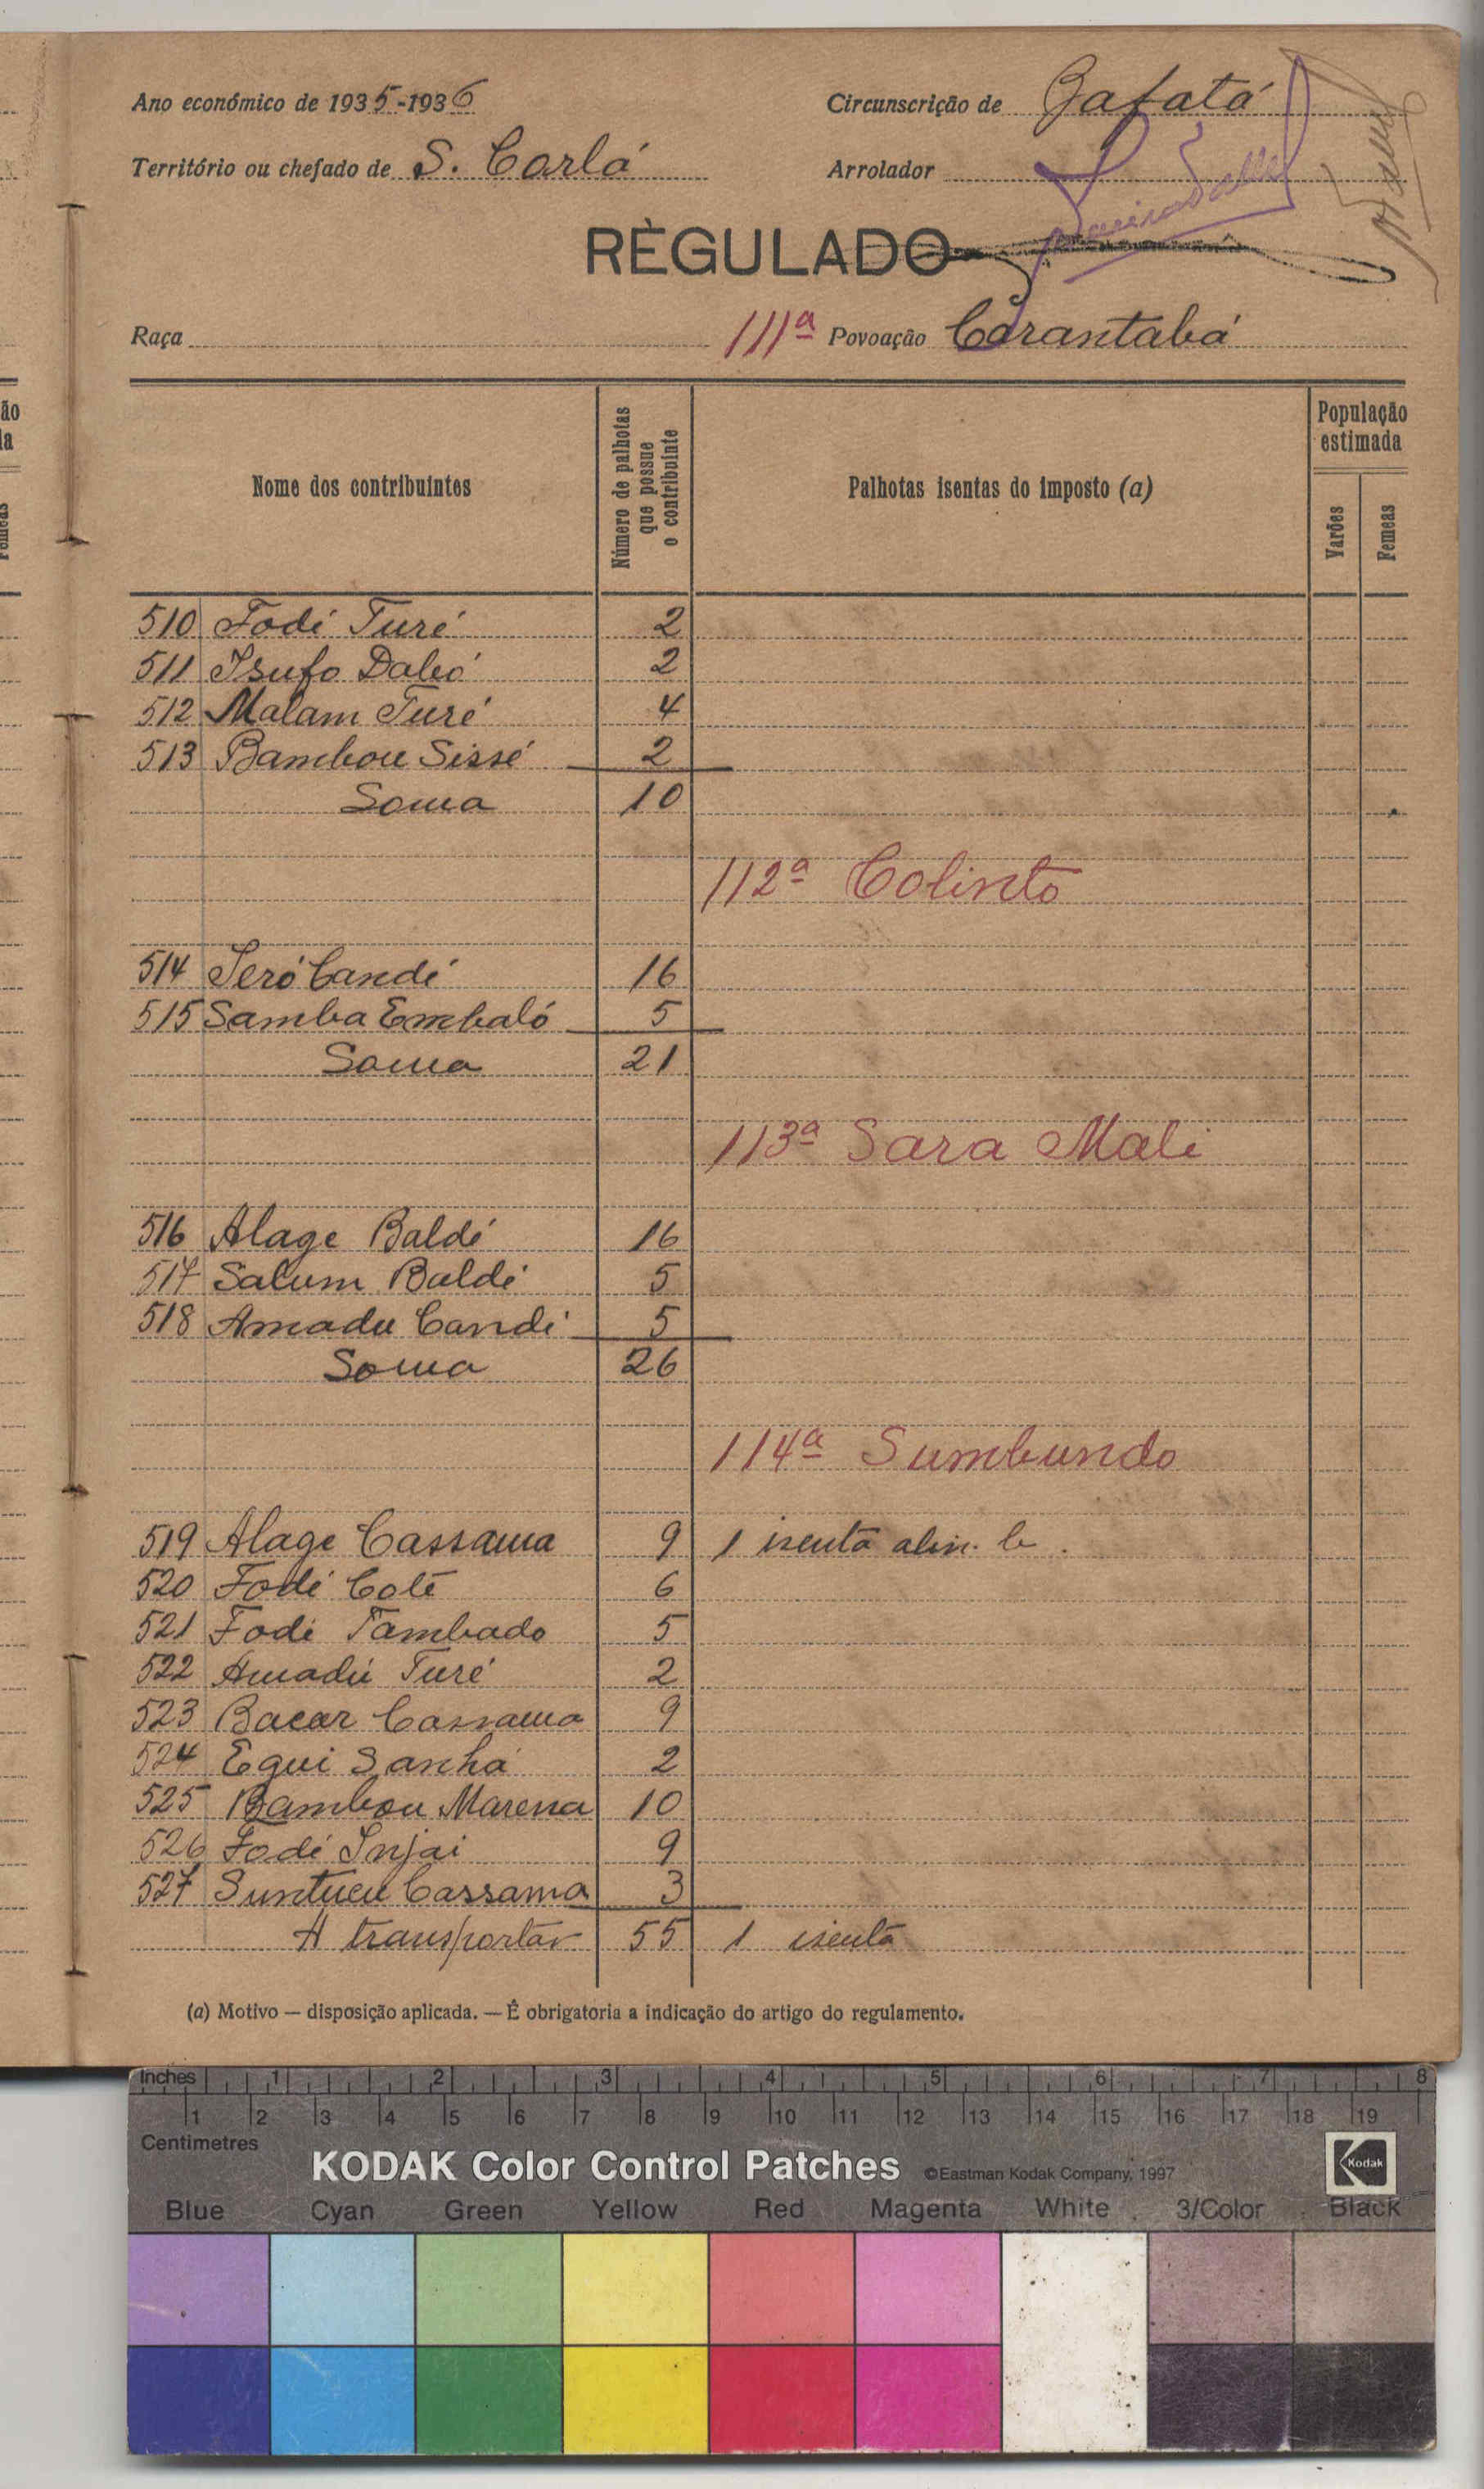 Ano económico de 1935-1936
Circunscrição de Bafatá
Território ou chefado de S. Corlá
Arrolador
RÈGULADO
Raça
111ª Povoação Carantabá
Nome dos contribuintes
Número de palhotas que possue o contribuinte
Palhotas isentas do imposto (a)
População estimada
Varões
Femeas
510 Fodé Turé 2
511 Isufo Dabó 2
512 Malam Turé 4
513 Bambou Sissé 2
Soma 10
112ª Colinto
514 Seró Candé 16
515 Samba Embaló 5
Soma 21
113ª Sara Mali
516 Alage Baldé 16
517 Salum Baldé 5
518 Amadu Candé 5
Soma 26
114ª Sumbundo
519 Alage Cassama 9 1 isenta alin. b.
520 Fodé Colé 6
521 Fodé Tambado 5
522 Amadú Turé 2
523 Bacar Cassama 9
524 Equi Sanhá 2
525 Bambou Marena 10
526 Fodé Injai 9
527 Suntucu Cassama 3
A transportar 55 1 isenta
(a) Motivo — disposição aplicada. — É obrigatória a indicação do artigo do regulamento.
Inches 1 2 3 4 5 6 7 8
1 2 3 4 5 6 7 8 9 10 11 12 13 14 15 16 17 18 19
Centimetres
KODAK Color Control Patches ©Eastman Kodak Company, 1997 Kodak
Blue Cyan Green Yellow Red Magenta White 3/Color Black